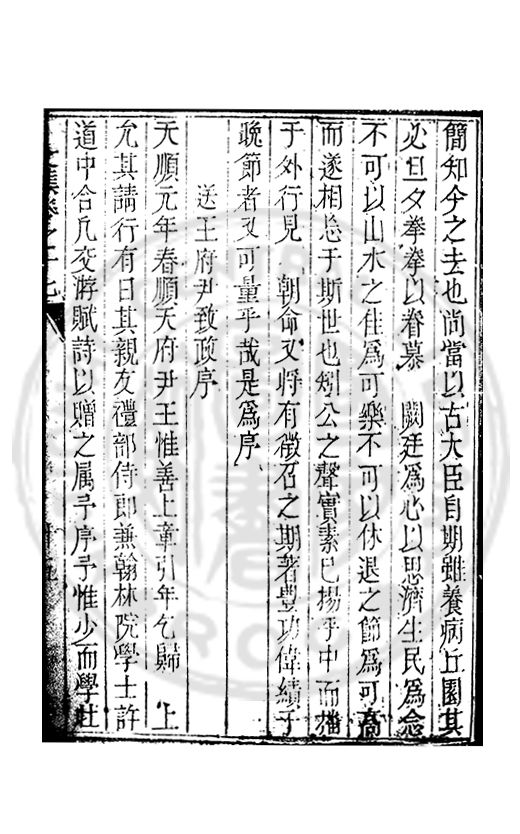 簡知今之去也尚當以古大臣自期雖養病丘園其
必旦夕拳拳以眷慕 闕廷爲心以思濟生民爲念
不可以山水之佳爲可樂不可以休退之節爲可高
而遂相忘于斯世也矧公之聲實素已揚乎中而播
于外行見 朝命又將有徵召之期著豊功偉績于
晚節者又可量乎哉是爲序
送王府尹致政序
天順元年春順天府尹王惟善上章引年乞歸 上
允其請行有日其親友禮部侍郎兼翰林院學士許
道中合凡交游賦詩以贈之属予序予惟少而學壮